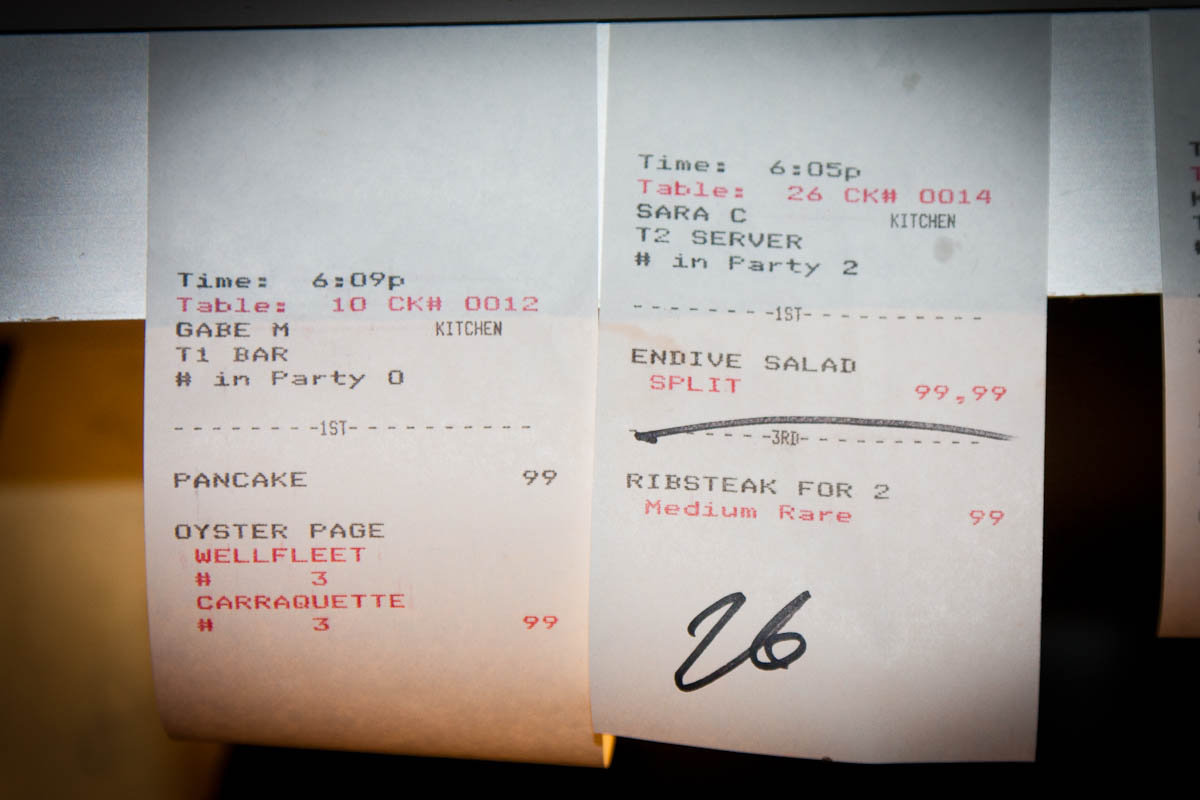 Time: 6:09p
Table: 10 CK# 0012
GABE M KITCHEN
T1 BAR
# in Party 0
--------1ST-----------
PANCAKE 99
OYSTER PAGE
WELLFLEET
# 3
CARRAQUETTE
# 3 99
Time: 6:05p
Table: 26 CK# 0014
SARA C KITCHEN
T2 SERVER
# in Party 2
--------1ST-----------
ENDIVE SALAD
SPLIT 99,99
--------3RD-----------
RIBSTEAK FOR 2
Medium Rare 99
26